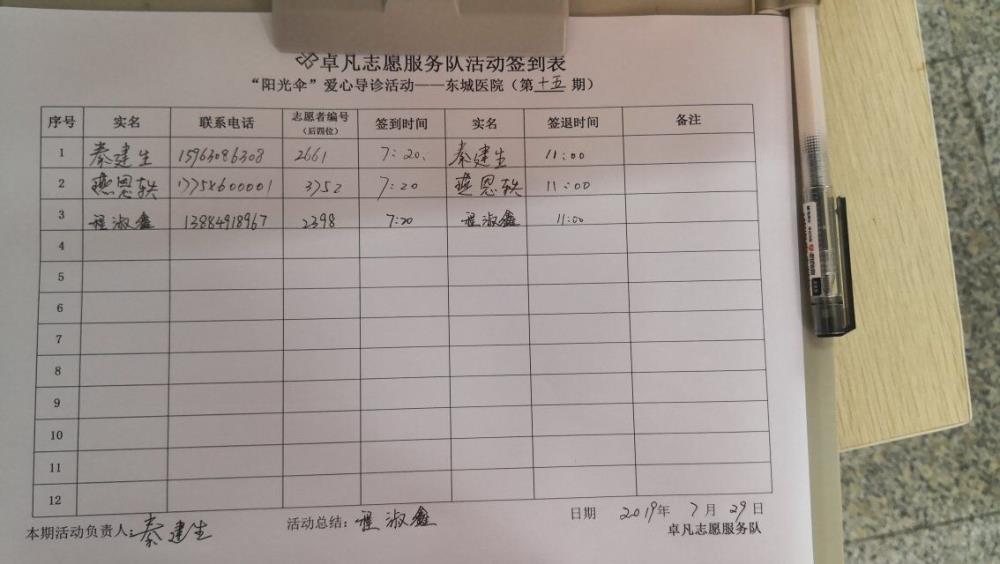 卓凡志愿服务队活动签到表
“阳光伞”爱心导诊活动——东城医院（第十五期）
序号 实名 联系电话 志愿者编号（后四位） 签到时间 实名 签退时间 备注
1 秦建生 15963086308 2661 7:20. 秦建生 11:00
2 燕恩轶 17758600001 3752 7:20 燕恩轶 11:00
3 程淑鑫 13884918967 2398 7:20 程淑鑫 11:00
4
5
6
7
8
9
10
11
12
本期活动负责人:秦建生 活动总结:程淑鑫 日期 2019年7月29日
卓凡志愿服务队